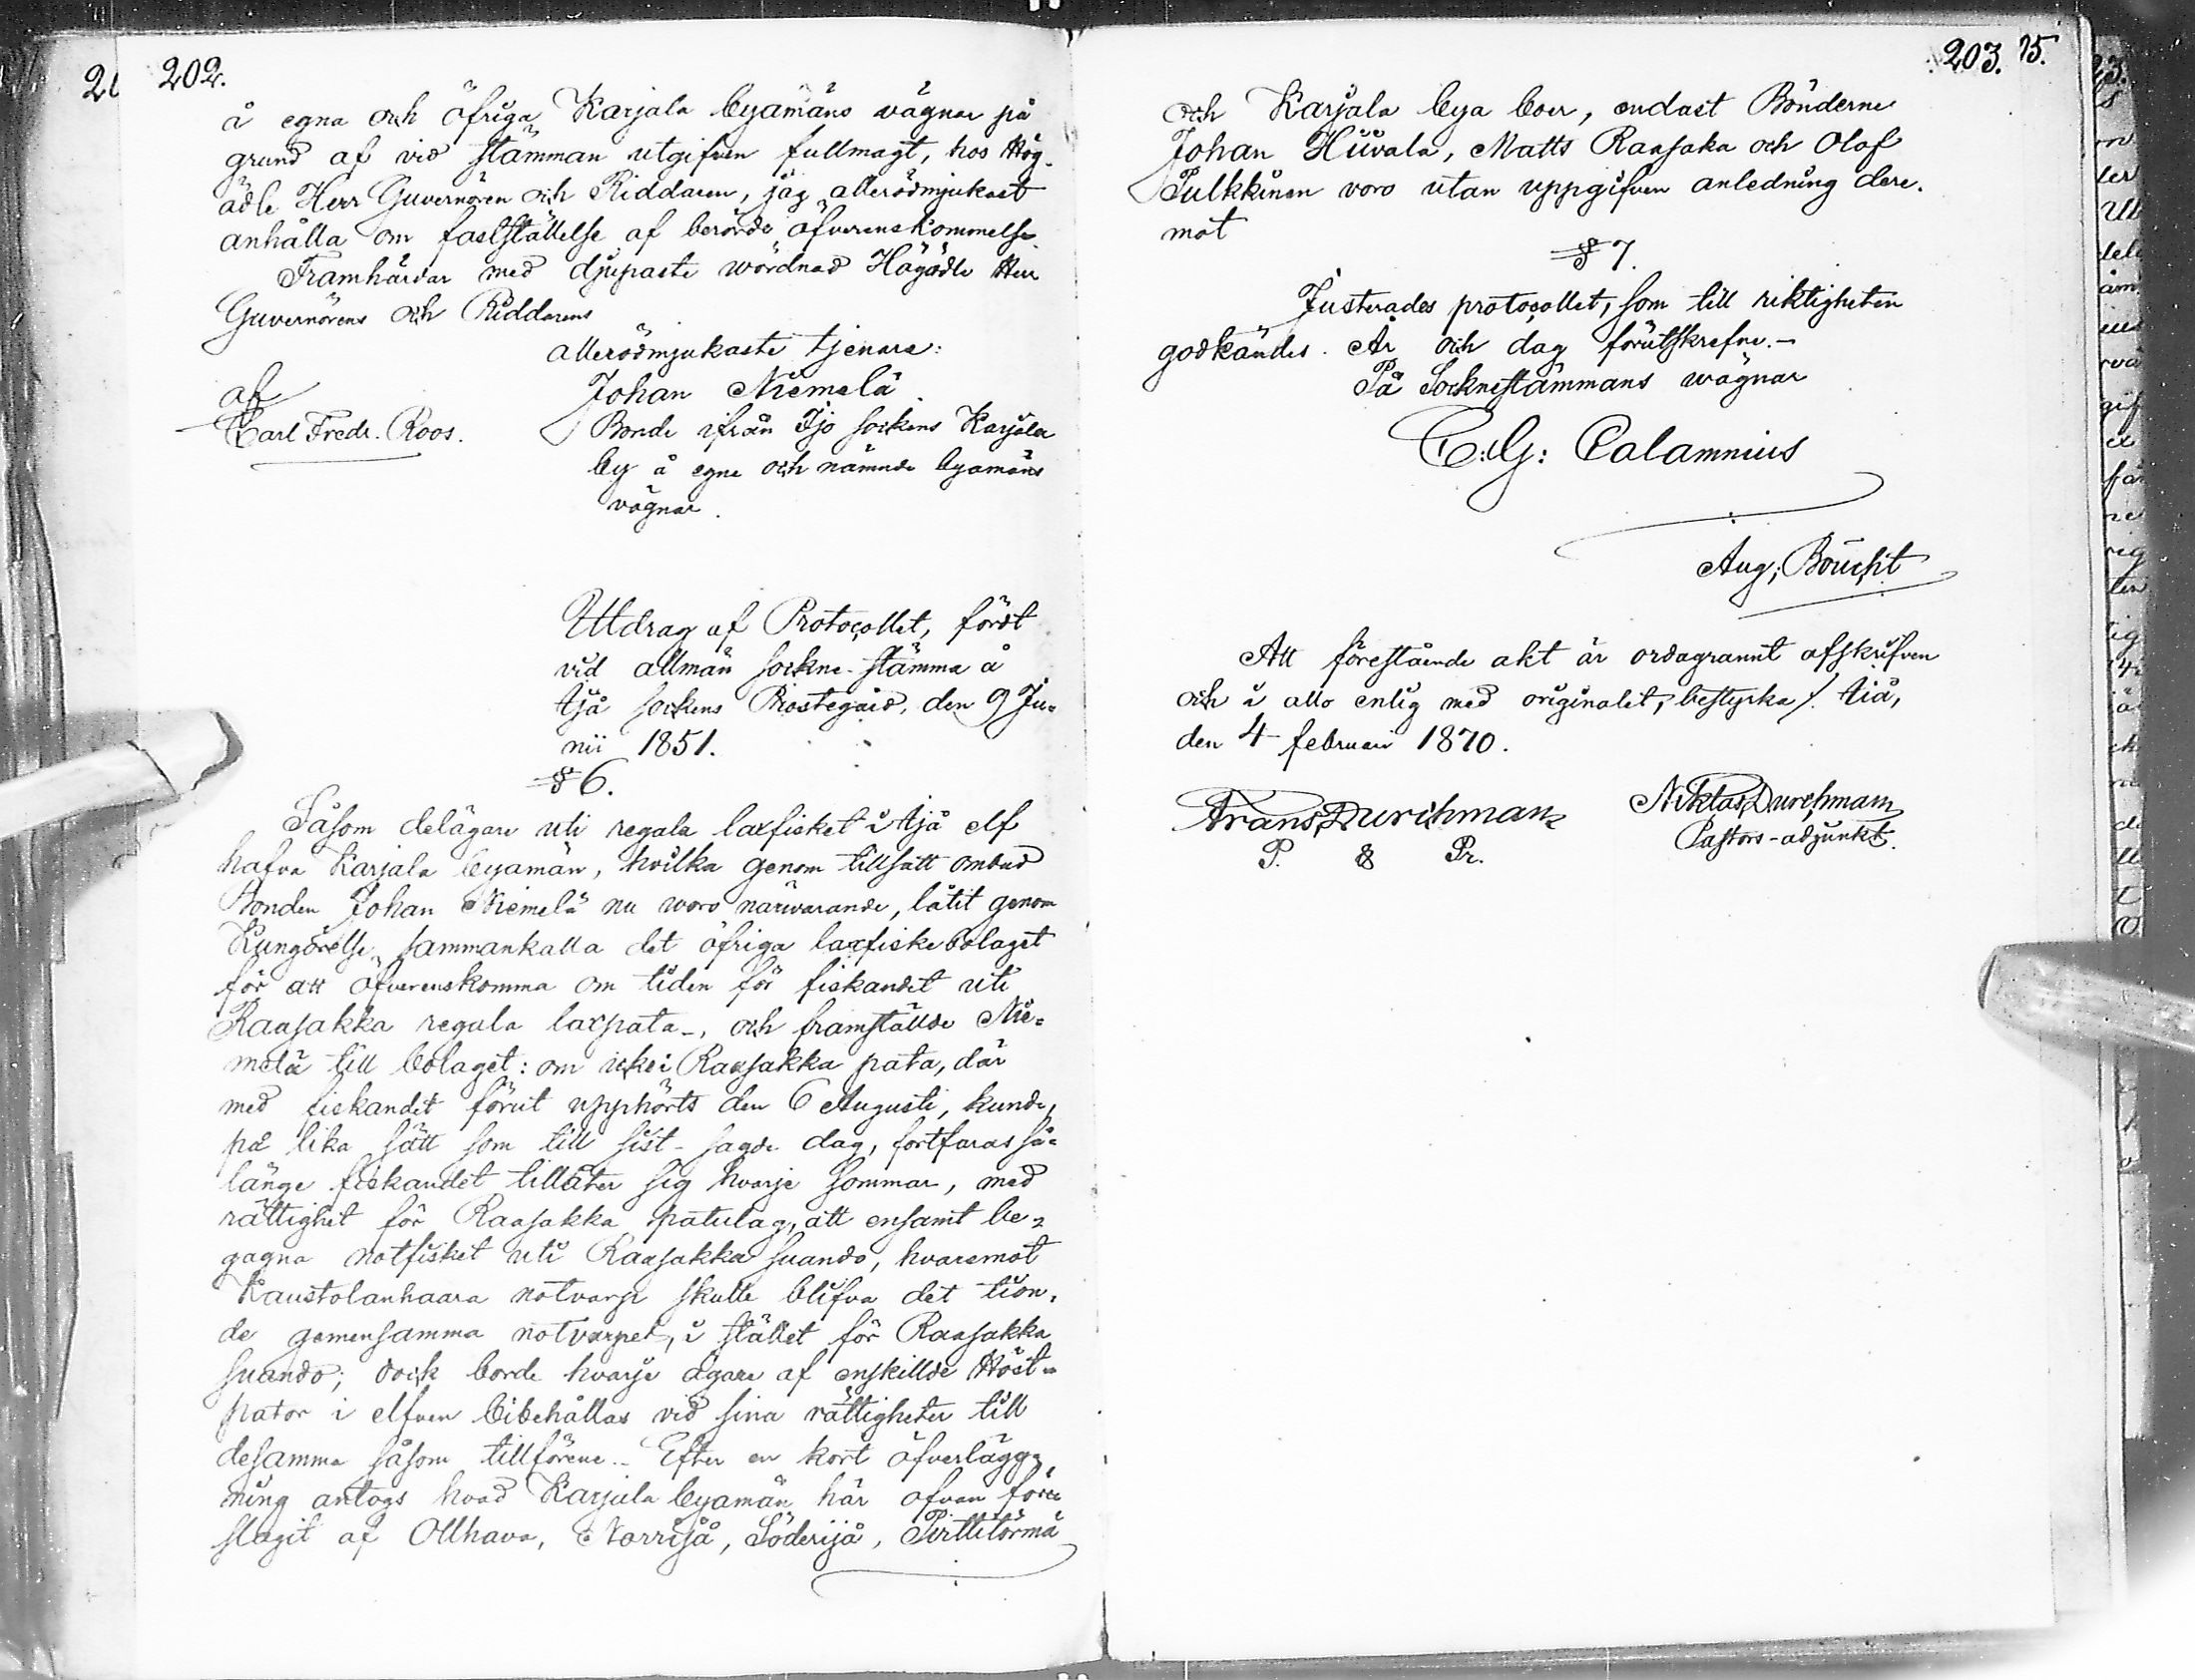 202.
å egna och öfriga Karjala byamäns vägnar på
grund af vid stämman utgifven fullmagt, hos Hög-
ädle Herr Guvernören och Riddaren, jag allerödmjukast
anhålla om fastställelse af berörde öfverenskommelse.
Framhärdar med djupaste wördnad Högädle Herr
Guvernörens och Riddarens
allerödmjukaste tjenare:
Johan Niemelä
Bonde ifrån Ijo sockens Karjala
by å egne och nämnde byamäns
vägnar.
af
Carl Fredr. Roos.
Utdrag af Protocollet, fördt
vid allmän sockne-stämma å
Ijå sockens Prostegård, den 9 Ju-
nii 1851.
§ 6.
Såsom delägare uti regala laxfisket i Ijå elf
hafva Karjala byamän, hvilka genom tillsatt ombud
Bonden Johan Niemelä nu woro närwarande, låtit genom
Kungörelse sammankalla det öfriga laxfiske bolaget
för att öfverenskomma om tiden för fiskandet uti
Raasakka regala laxpata-, och framställde Nie-
melä till bolaget: om icke i Raasakka pata, där
med fiskandet förut upphörts den 6 Augusti, kunde,
på lika sätt som till sist-sagde dag, fortfaras så-
länge fiskandet tillåter sig hvarje sommar, med
rättighet för Raasakka patulag, att ensamt be-
gagna notfisket uti Raasakka suando, hvaremot
Kaustolanhaara notvarp skulle blifva det tion-
de gemensamma notvarpet, i stället för Raasakka
suando; dock borde hvarje ägare af enskillde Höst-
pator i elfven bibehållas vid sina rättigheter till
desamma såsom tillförene.- Efter en kort öfverlägg-
ning antogs hvad Karjala byamän här ofvan före
slagit af Ollhava, Norrijå, Söderijå, Pirttitörmä
203. 75.
och Karjala bya boer, endast Bönderne
Johan Hiivala, Matts Raasaka och Olof
Pulkkinen voro utan uppgifven anledning dere-
mot
§ 7.
Justerades protocollet, som till riktigheten
godkändes. År och dag förutskrefne.-
På Socknestämmans wägnar
C: G: Calamnius
Aug; Boucht
Att förestående akt är ordagrannt afskrifven
och i allo enlig med originalet, bestyrka /. Ijå,
den 4 februari 1870.
Frans Durchman
P. & Pr.
Niklas Durchman
Pastors-adjunkt.